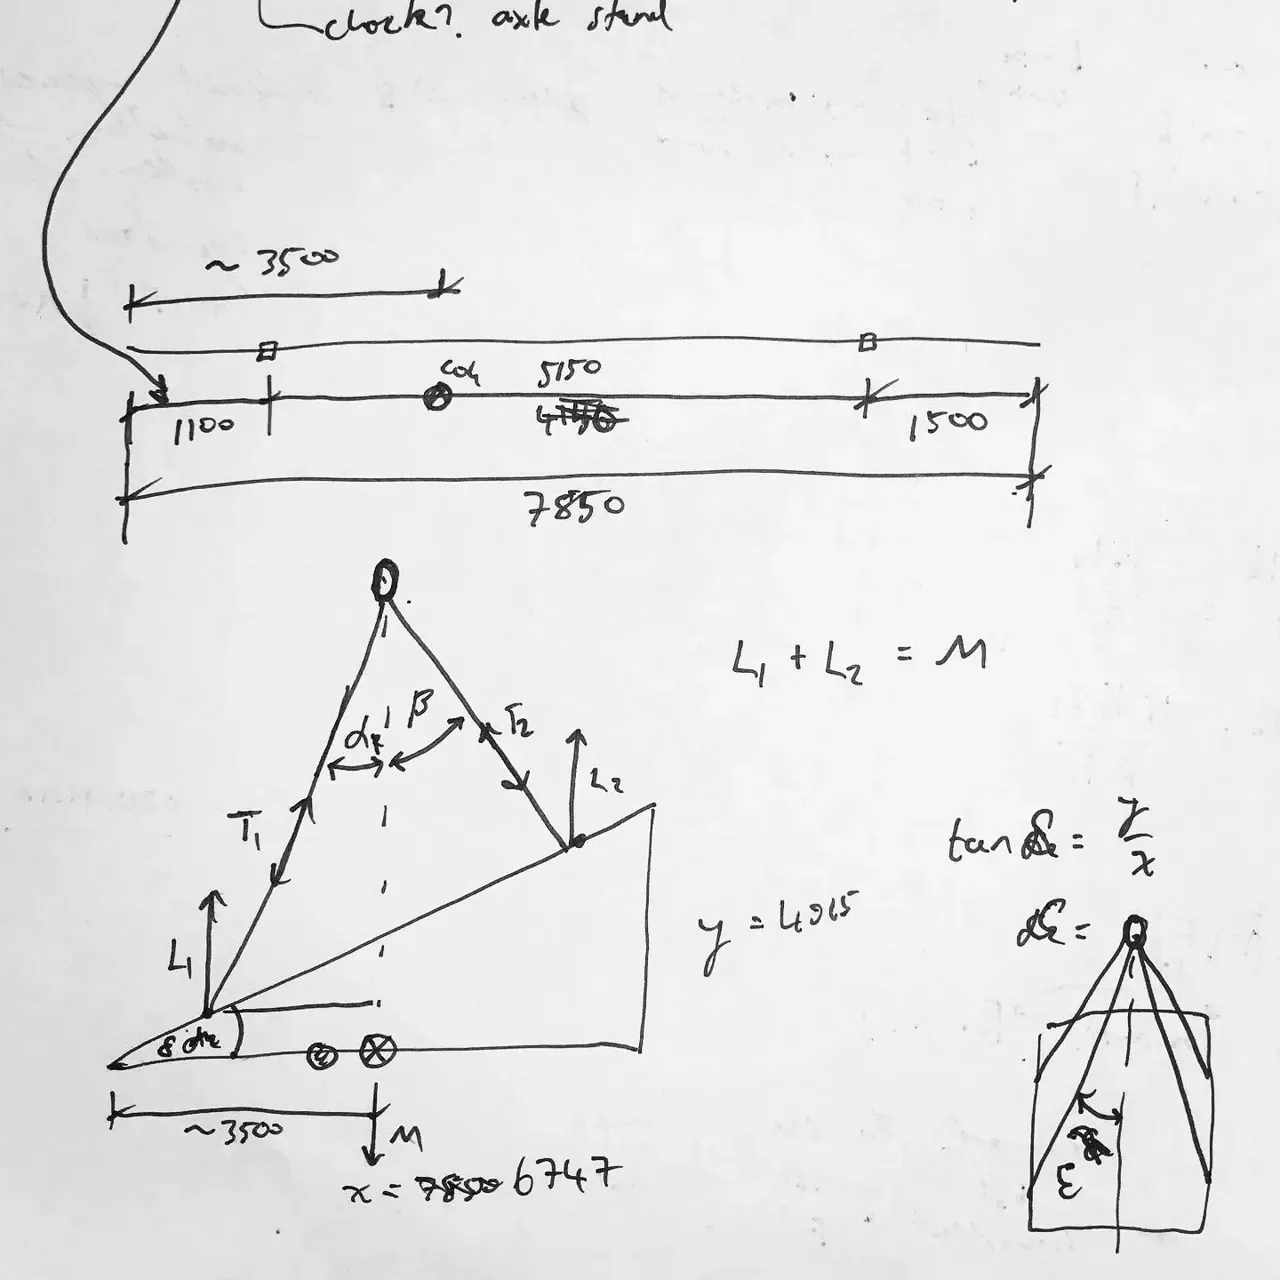 clock? axle stand
~ 3500
COG
5150
1100
1500
7850
L1 + L2 = M
β
α
T2
L2
T1
tan δ = y/x
y = 4015
L1
δ =
δ
~3500
M
x = 6747
ε